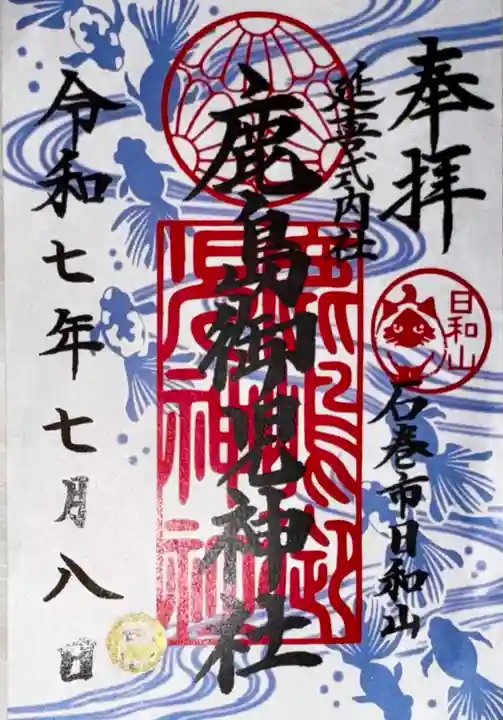 奉拝
延喜式内社
日和山
石巻市日和山
鹿島御児神社
令和七年七月八日